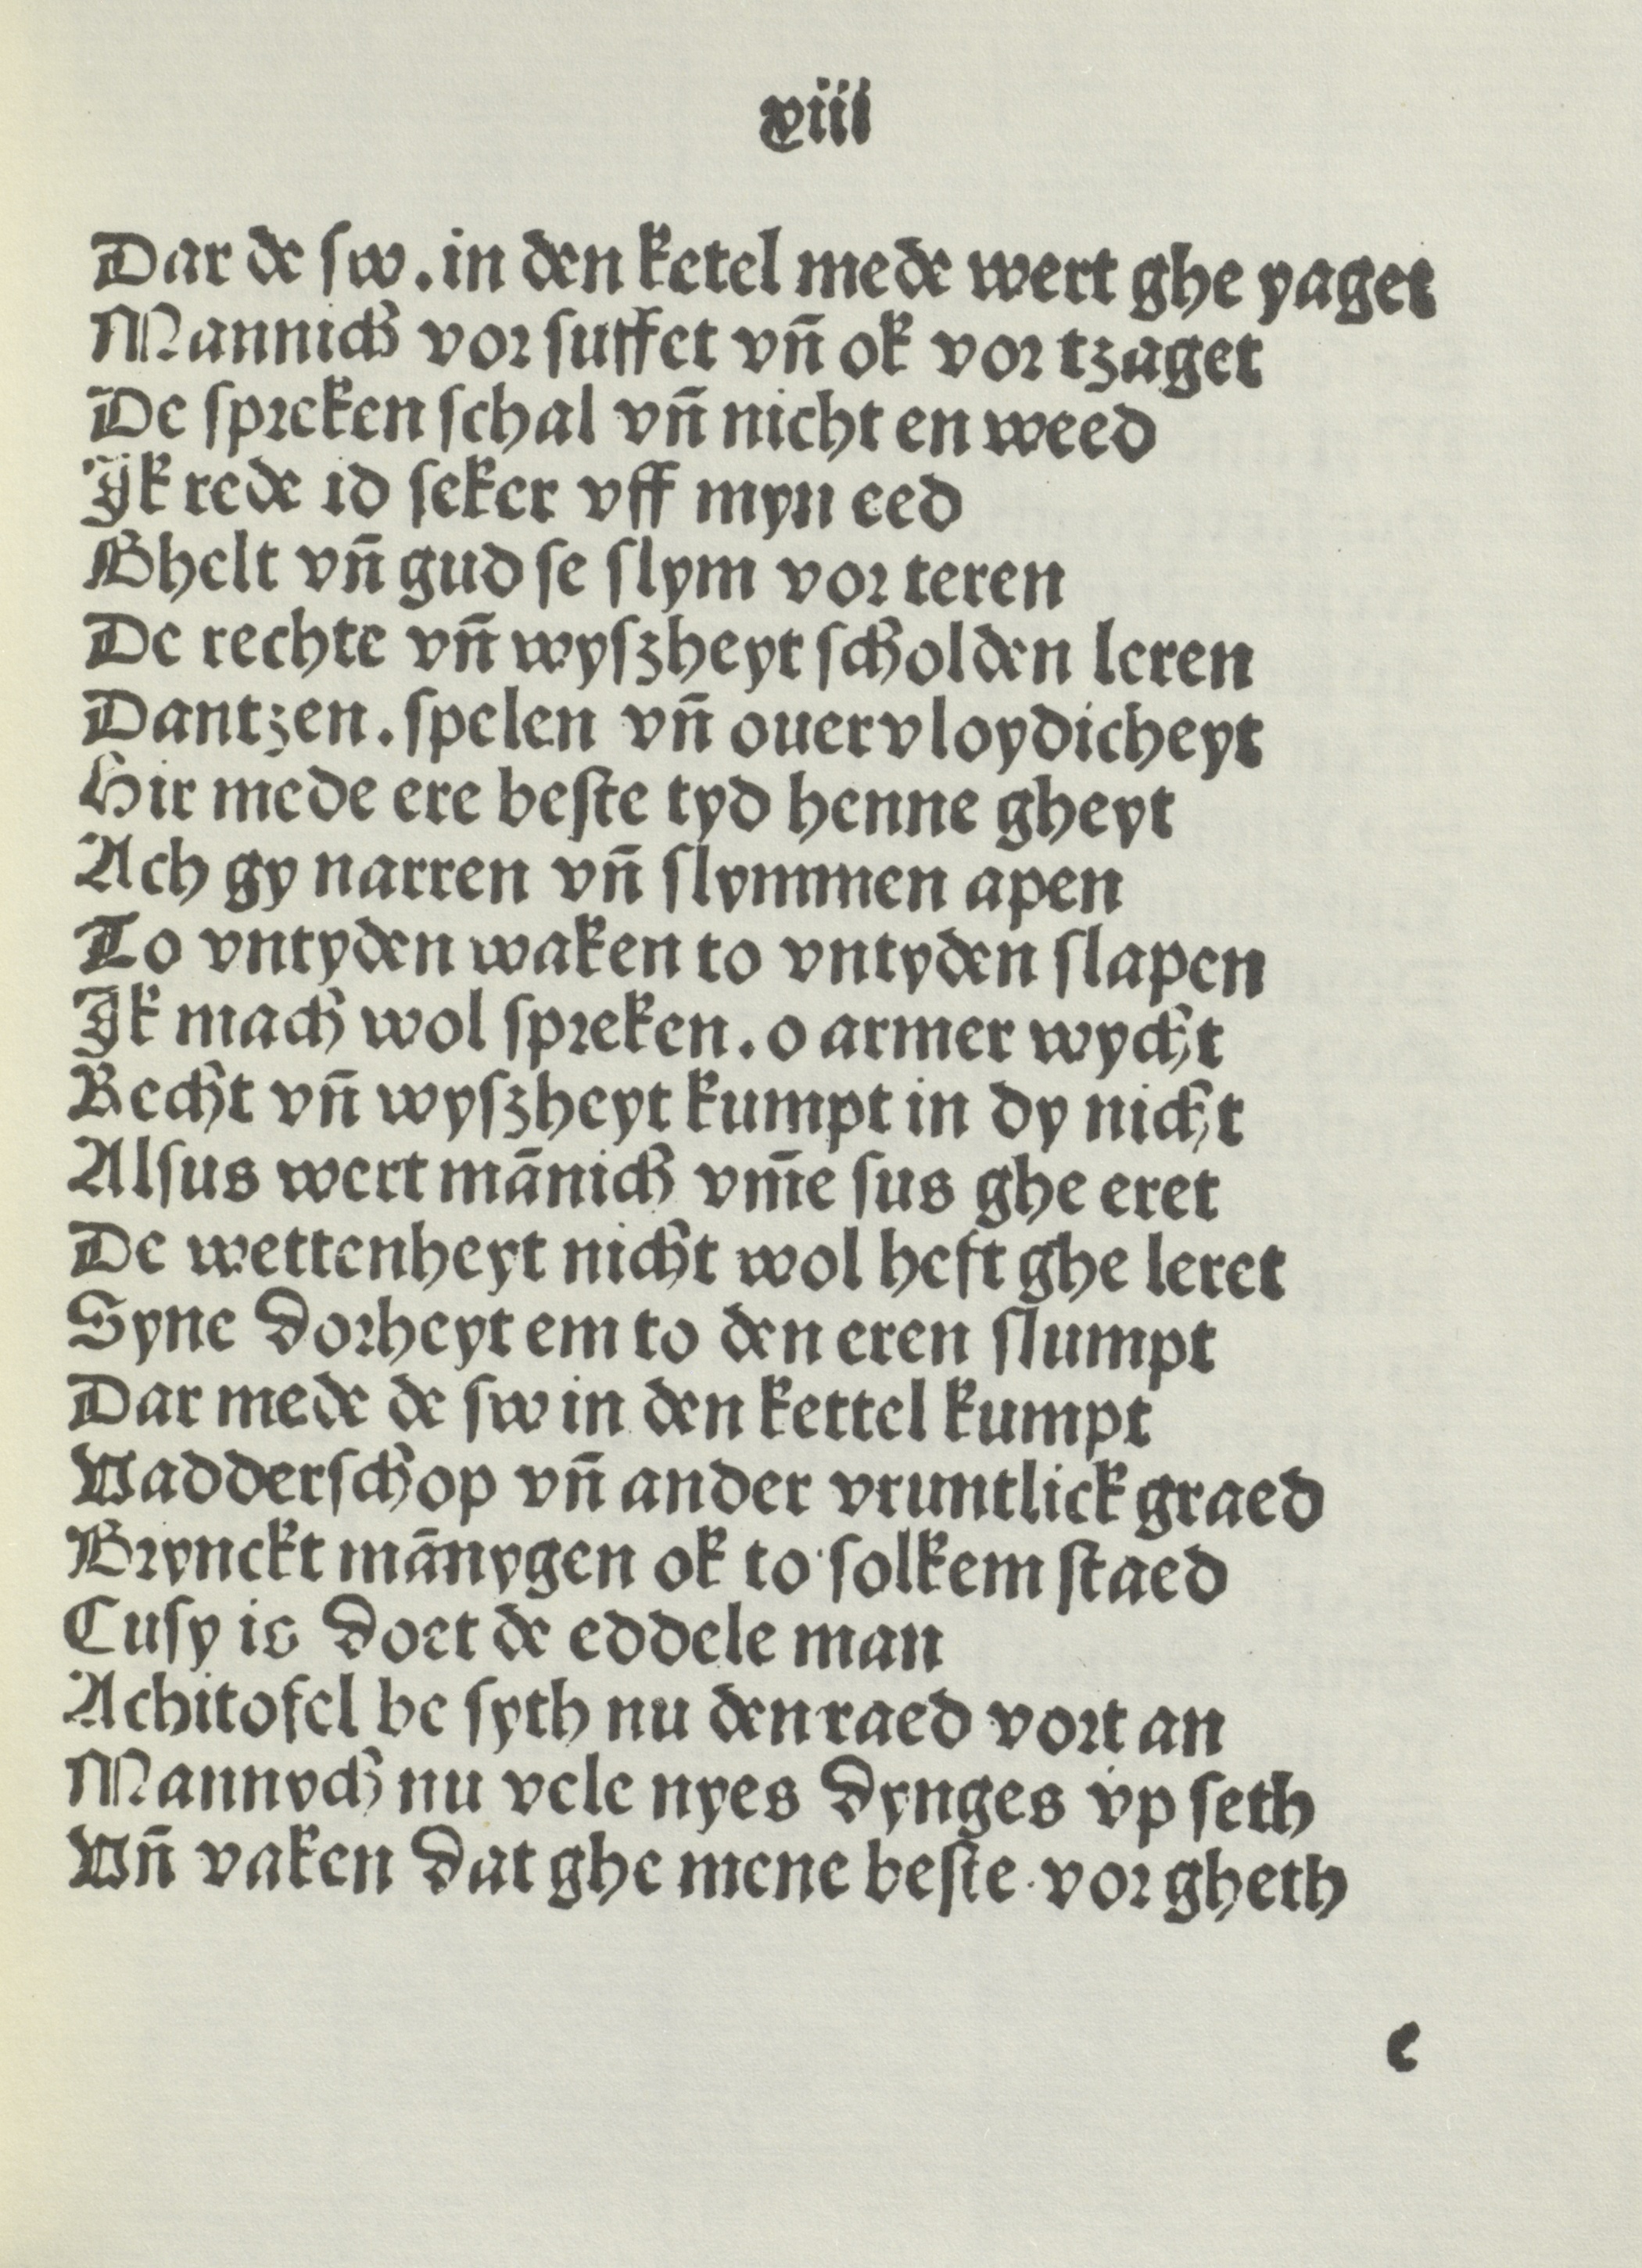 xiii
Dar de ſw. in den ketel mede wert ghe yaget
Mannich vor ſuffet vn̄ ok vor tzaget
De ſpreken ſchal vn̄ nicht en weed
Jk rede id ſeker vff myn eed
Ghelt vn̄ gud ſe ſlym vor teren
De rechte vn̄ wyſzheyt ſcholden leren
Dantzen. ſpelen vn̄ ouervloydicheyt
Hir mede ere beſte tyd henne gheyt
Ach gy narren vn̄ ſlymmen apen
To vntyden waken to vntyden ſlapen
Jk mach wol ſpreken. o armer wycht
Recht vn̄ wyſzheyt kumpt in dy nicht
Alſus wert mānich vm̄e ſus ghe eret
De wettenheyt nicht wol heft ghe leret
Syne dorheyt em to den eren ſlumpt
Dar mede de ſw in den kettel kumpt
Vadderſchop vn̄ ander vruntlick graed
Brynckt mānygen ok to ſolkem ſtaed
Cuſy is doet de eddele man
Achitofel be ſyth nu den raed vort an
Mannych nu vele nyes dynges vp ſeth
Vn̄ vaken dat ghe mene beſte vor gheth
c